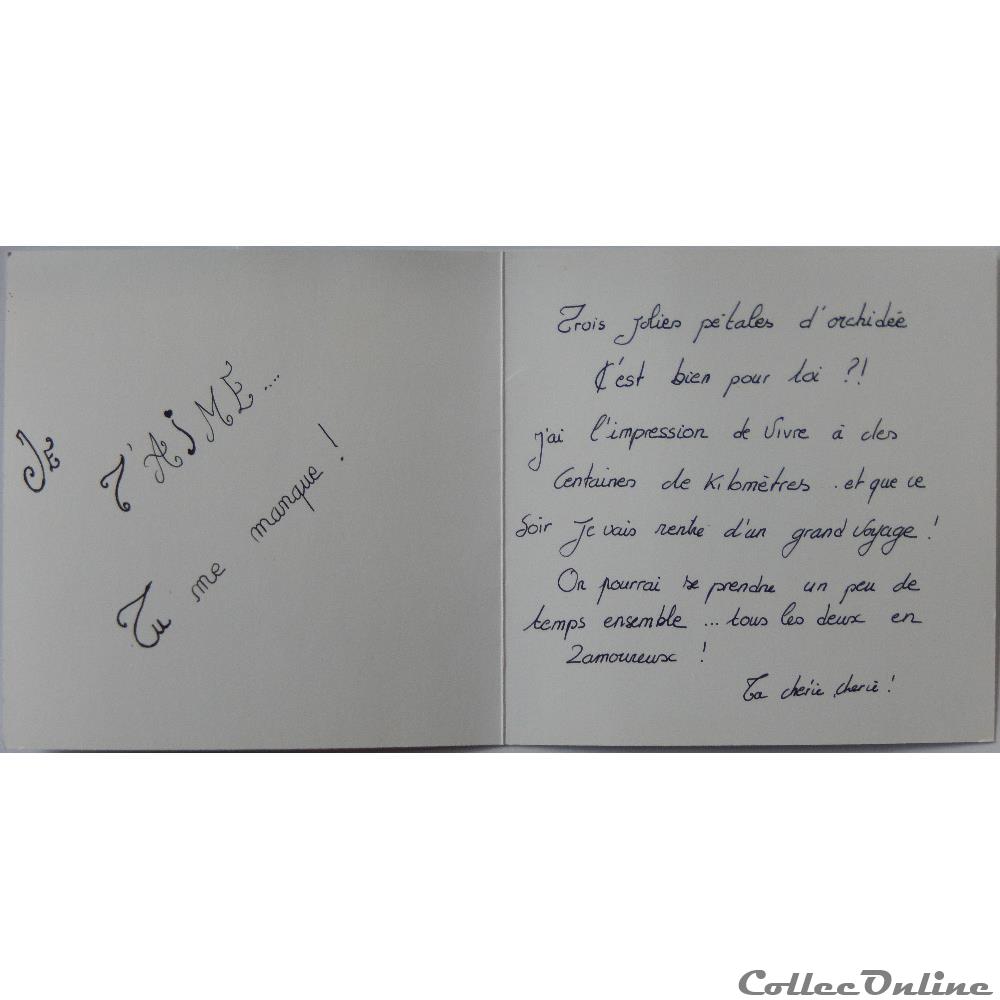 Je T'AiME....
Tu me manque !
Trois jolies pétales d'orchidée
C'est bien pour toi ?!
j'ai l'impression de vivre à des
Centaines de Kilomètres . et que ce
Soir Je vais rentre d'un grand voyage !
On pourrai se prendre un peu de
temps ensemble ... tous les deux en
2amoureux !
Ta chérie, cherie !
CollecOnline